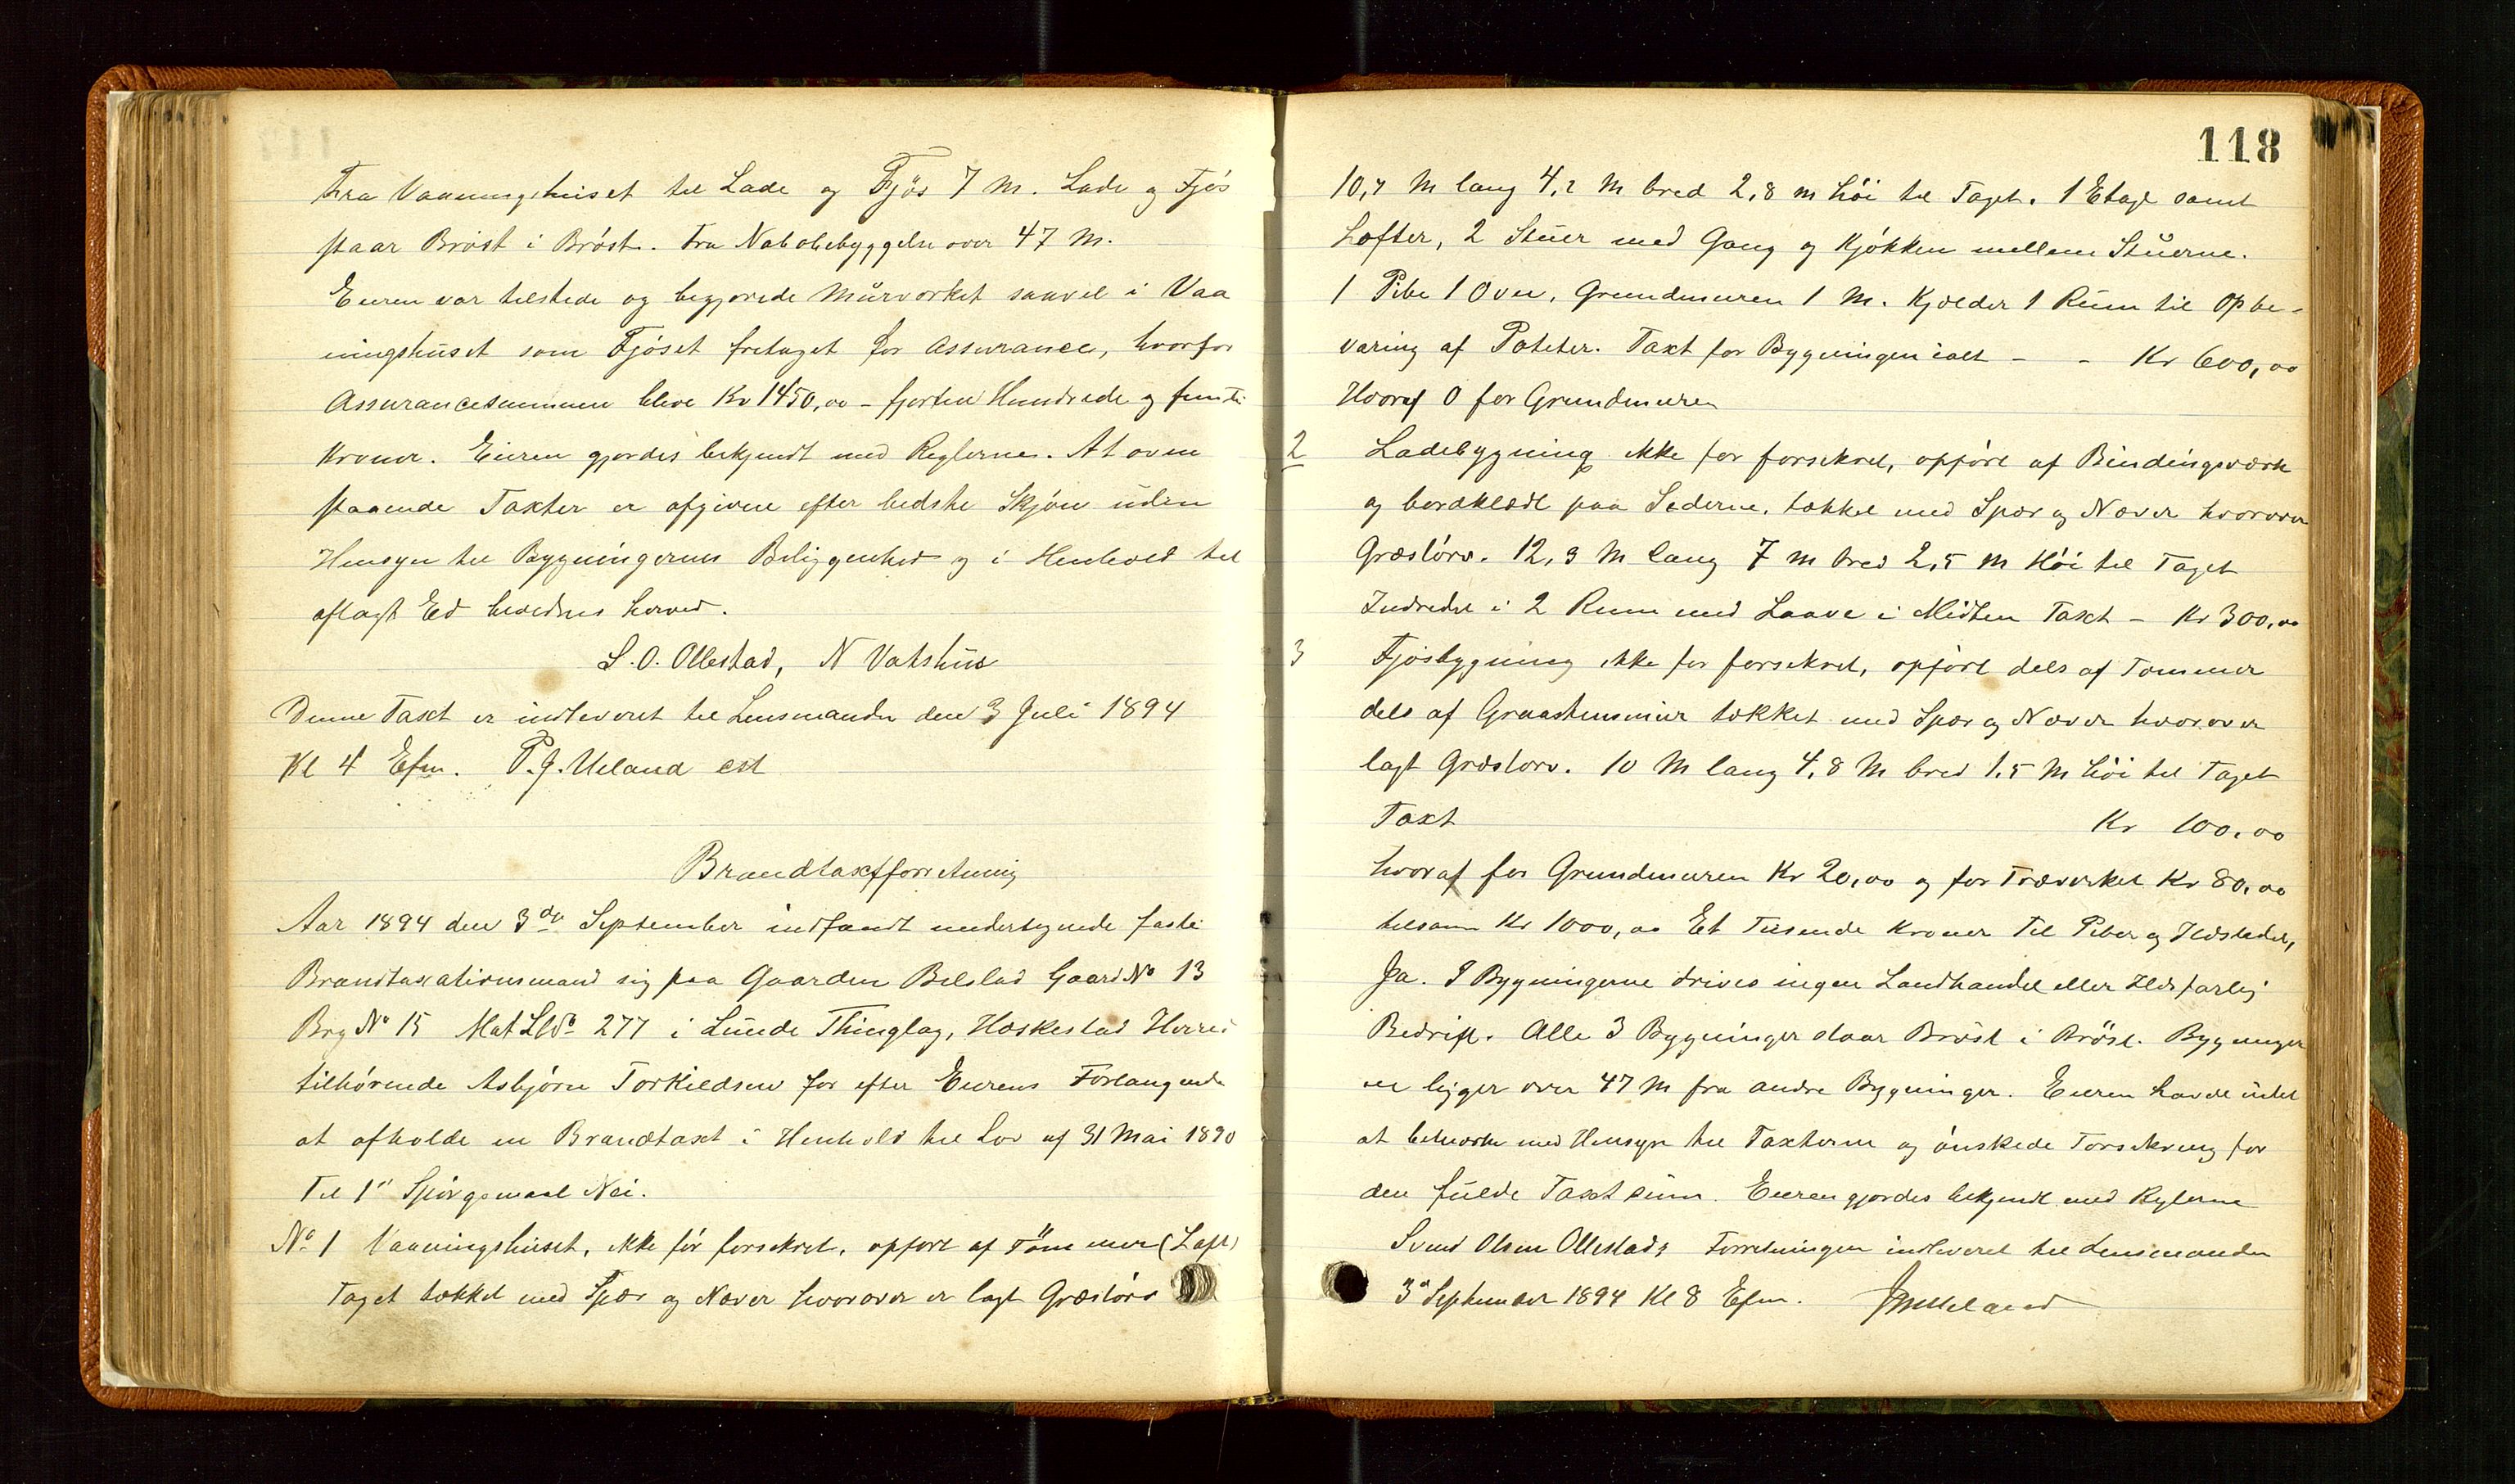 Fra Vaaningshuset til Lade og Fjös 7 M. Lade og Fjös
staar Bröst i Bröst. Fra Nabobebyggelse over 47 M.
Eieren var tilstede og begjærede Murværket saavel i Vaa
ningshuset som Fjöset fritaget for Assurance, hvorfor
Assurancesummen bleve Kr 1450,00 – fjorten Hundrede og femti
Kroner. Eieren gjordes bekjendt med Reglerne. At oven
staaende Taxter er afgivne efter bedste Skjön uden
Hensyn til Bygningernes Beliggenhed og i Henhold til
aflagt Ed bevidnes herved.
S. O. Ollestad, N Vatshus
Denne Taxt er indleveret til Lensmanden den 3 Juli 1894
Kl 4 Efm. P. J. Ueland cst
Brandtaxtforretning
Aar 1894 den 3die September indfandt undertegnede faste
Brandtaxationsmand sig paa Gaarden Belstad Gaard No 13
Brg No 15 Mat LNo 277 i Lunde Thinglag, Hæskestad Herred
tilhörende Asbjörn Torkildsen for efter Eierens Forlangende
at afholde en Brandtaxt i Henhold til Lov af 31 Mai 1890
Til 1" Spörgsmaal Nei.
No 1 Vaaningshuset, ikke för forsikret, opfört af Tömmer (Laft)
Taget tækket med Spær og Næver hvorover er lagt Græstörv
118
10,7 M lang 4,2 M bred 2,8 m höi til Taget. 1 Etage samt
Lofter, 2 Stuer med Gang og Kjökken mellem Stuerne.
1 Pibe 1 Ovn, Grundmuren 1 M. Kjælder 1 Rum til Opbe-
varing af Poteter. Taxt for Bygningen ialt – – Kr 600,00
Hvoraf 0 for Grundmuren
2 Ladebygning ikke för forsikret, opfört af Bindingsværk
og bordklædt paa Siderne, tækket med Spær og Næver hvorover
Græstörv. 12,3 M lang 7 m bred 2,5 m Höi til Taget
Indredet i 2 Rum med Laave i Midten Taxt – Kr 300,00
3 Fjösbygning ikke för forsikret, opfört dels af Tömmer
dels af Graastensmur tækket med Spær og Næver hvorover
lagt Græstörv. 10 M lang 4,8 M bred 1,5 M höi til Taget
Taxt Kr 100,00
hvoraf for Grundmuren Kr 20,00 og for Træværket Kr 80,00
tilsam Kr 1000,00 Et Tusende Kroner Til Piber og Ildsteder,
Ja. I Bygningerne drives ingen Landhandel eller Ildsfarlig
Bedrift. Alle 3 Bygninger staar Bröst i Bröst. Bygninger
ne ligger over 47 M fra andre Bygninger. Eieren havde intet
at bemærke med Hensyn til Taxterne og önskede Forsikring for
den fulde Taxt sum. Eieren gjordes bekjendt med Reglerne
Svend Olsen Ollestad; Forretningen indleveret til Lensmanden
3d September 1894 Kl 8 Efm. Ueland